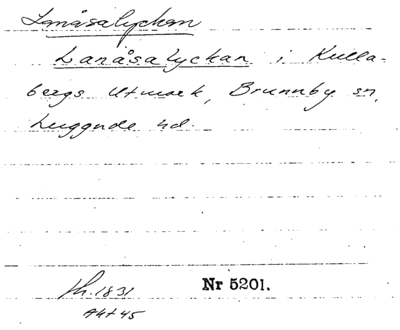 Lanåsalyckan
Lanåsalyckan i Kulla-
bergs Utmark, Brunnby sn,
Luggude hd.
Nr 5201.
Ah. 1831
Akt 45